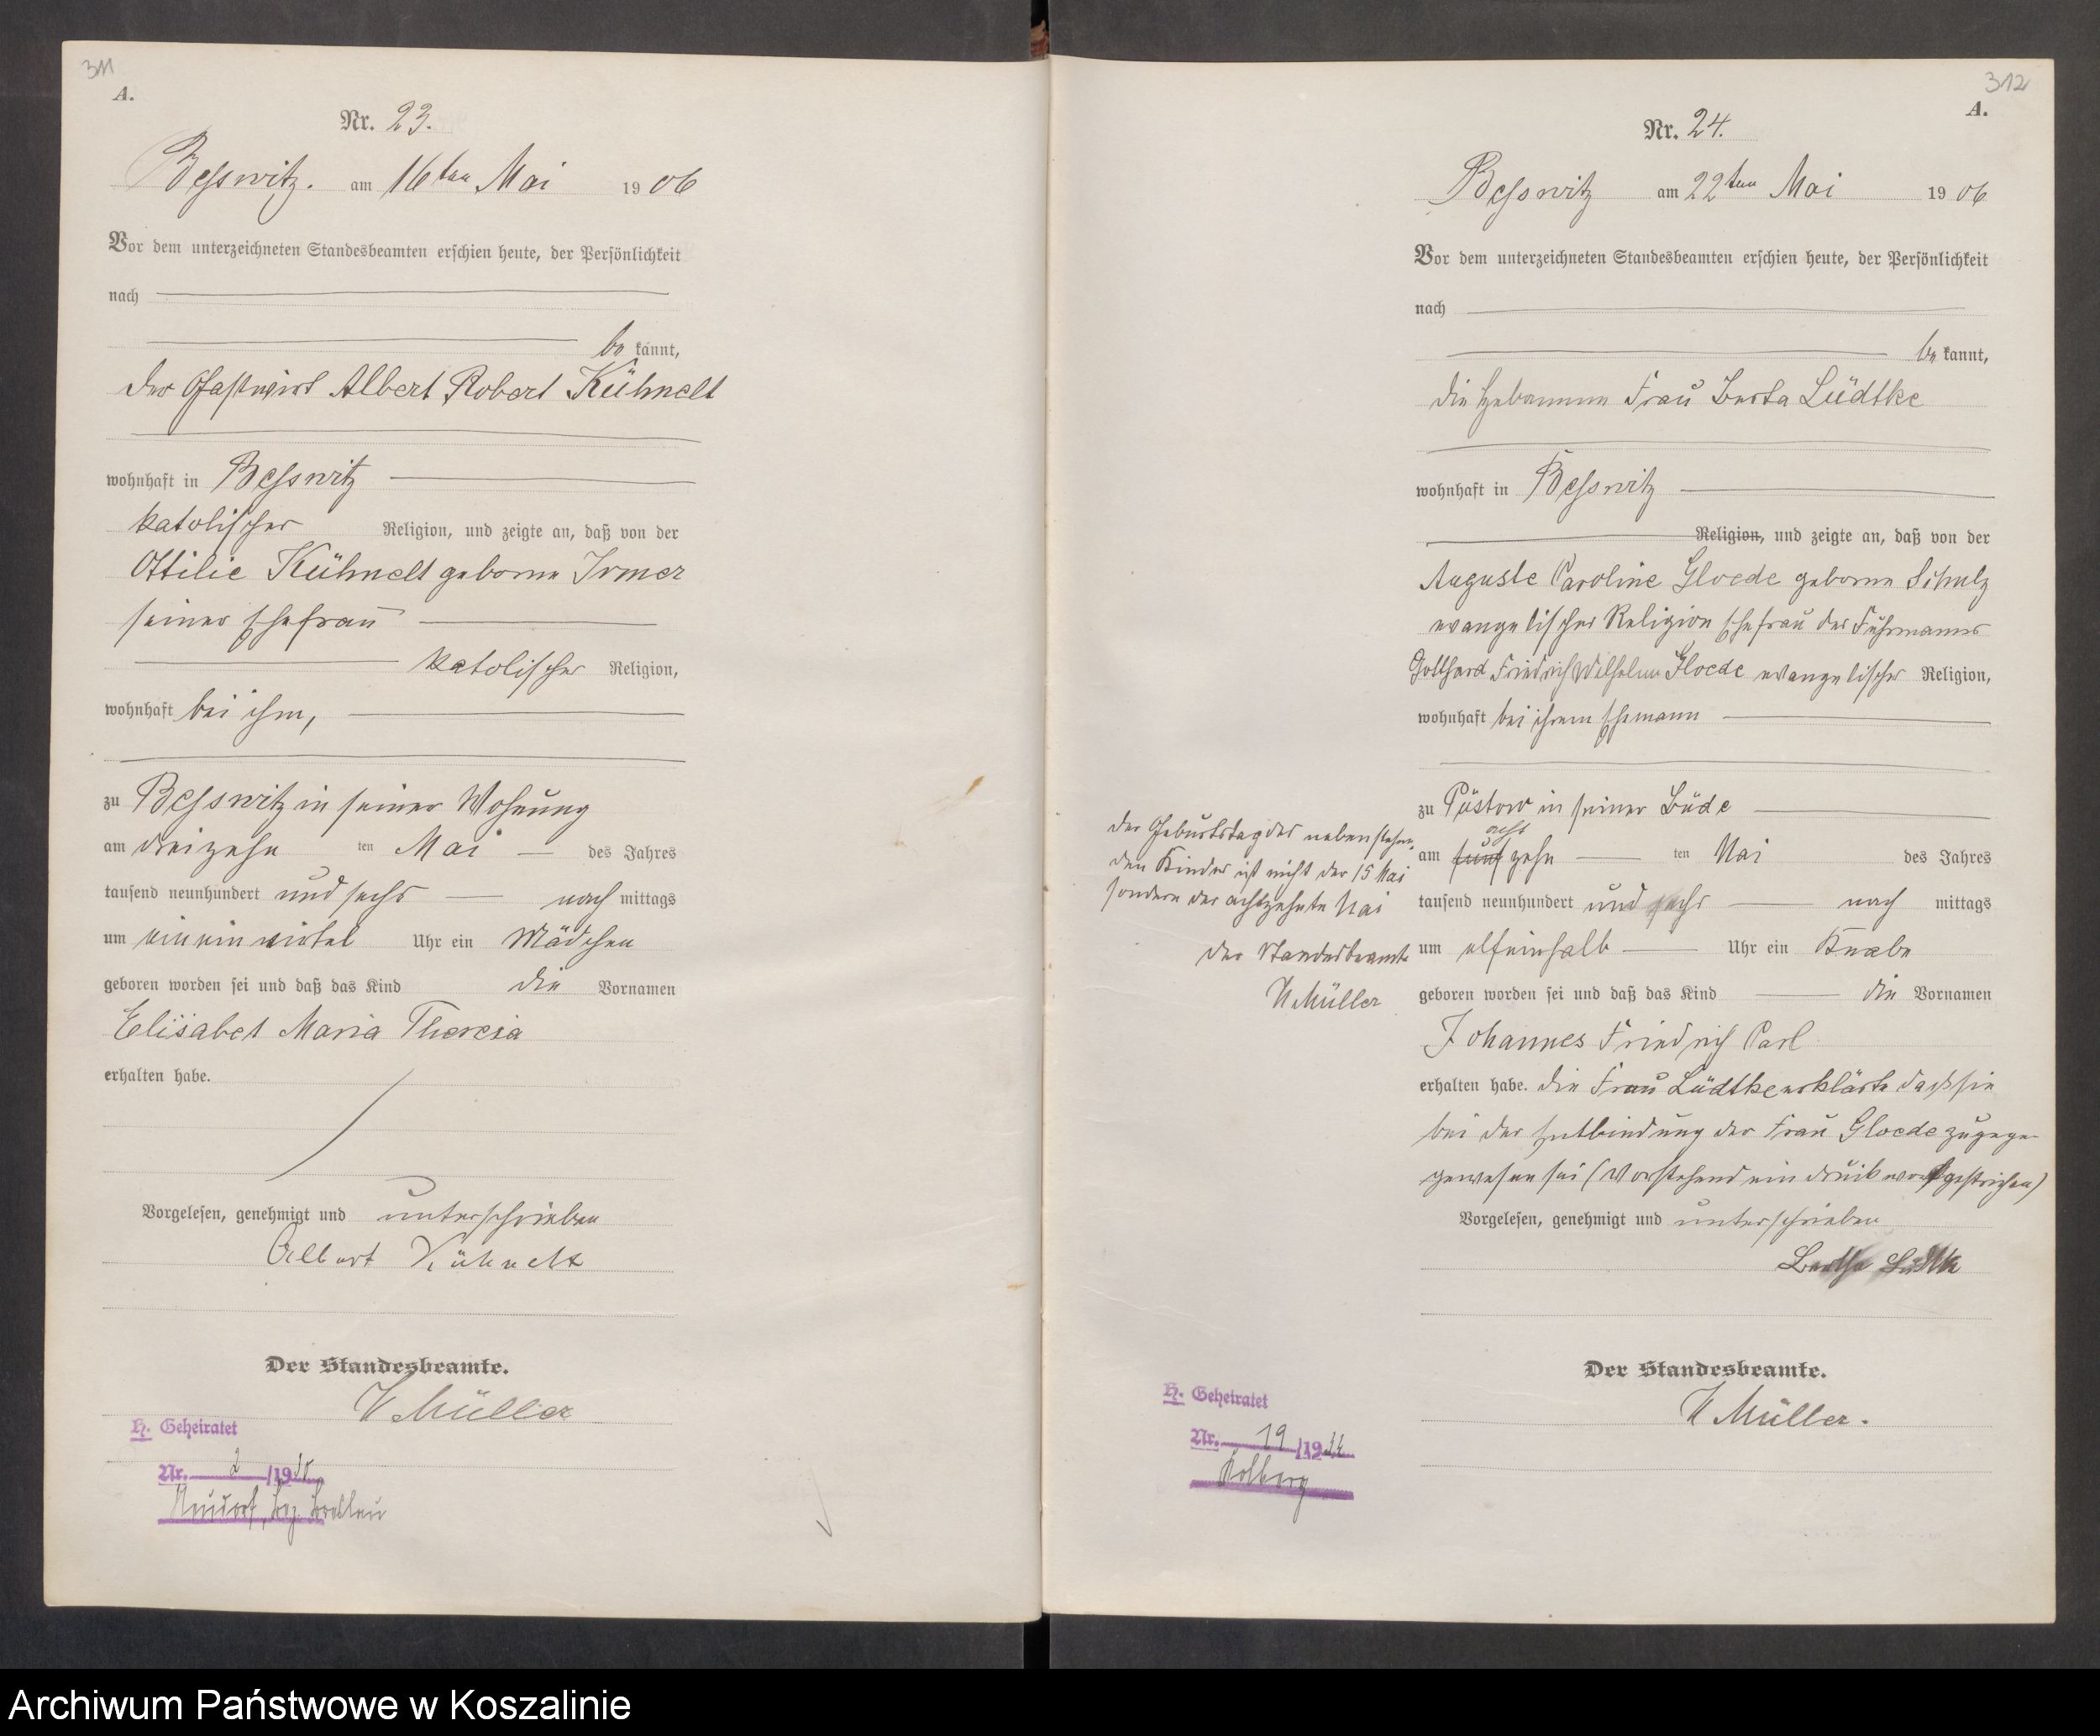 311
A.
Nr. 23.
Besswitz. am 16ten Mai 1906
Vor dem unterzeichneten Standesbeamten erschien heute, der Persönlichkeit
nach
be kannt,
der Gastwirt Albert Robert Kühnelt
wohnhaft in Besswitz
katolischer Religion, und zeigte an, daß von der
Ottilie Kühnelt geborne Irmer
seiner Ehefrau
katolischer Religion,
wohnhaft bei ihm,
zu Besswitz in seiner Wohnung
am dreizehn ten Mai des Jahres
tausend neunhundert und sechs nach mittags
um ein ein viertel Uhr ein Mädchen
geboren worden sei und daß das Kind die Vornamen
Elisabet Maria Theresia
erhalten habe.
Vorgelesen, genehmigt und unterschrieben
Albert Kühnelt
Der Standesbeamte.
W Müller
H. Geheiratet
Nr. 2 /19
Neudorf, Bez. Breslau
312
A.
Nr. 24.
Besswitz am 22ten Mai 1906
Vor dem unterzeichneten Standesbeamten erschien heute, der Persönlichkeit
nach
be kannt,
die Hebamme Frau Berta Lüdtke
wohnhaft in Besswitz
Religion, und zeigte an, daß von der
Auguste Caroline Gloede geborne Schulz
evangelischer Religion Ehefrau des Fuhrmanns
Gotthard Friedrich Wilhelm Gloede evangelischer Religion,
wohnhaft bei ihrem Ehemann
zu Püstow in seiner Bude
acht
am fünf zehn ten Mai des Jahres
tausend neunhundert und sechs nach mittags
um elfeinhalb Uhr ein Knabe
geboren worden sei und daß das Kind die Vornamen
Johannes Friedrich Carl
erhalten habe. die Frau Lüdtke erklärte dass sie
bei der Entbindung der Frau Gloede zugegen
gewesen sei (Vorstehend ein Druckwort gestrichen)
Vorgelesen, genehmigt und unterschrieben
Bertha Lüdtke
Der Standesbeamte.
W Müller.
der Geburtstag des nebenstehen
den Kindes ist nicht der 15 Mai
sondern der achtzehnte Mai
der Standesbeamte
W Müller
H. Geheiratet
Nr. 19 /19
Kolberg
Archiwum Państwowe w Koszalinie